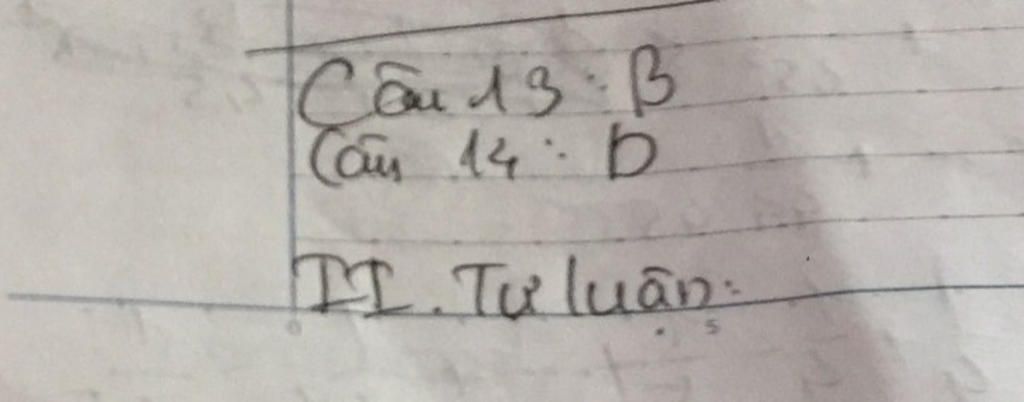 Câu 13: B
Câu 14: D
II. Tự luận: